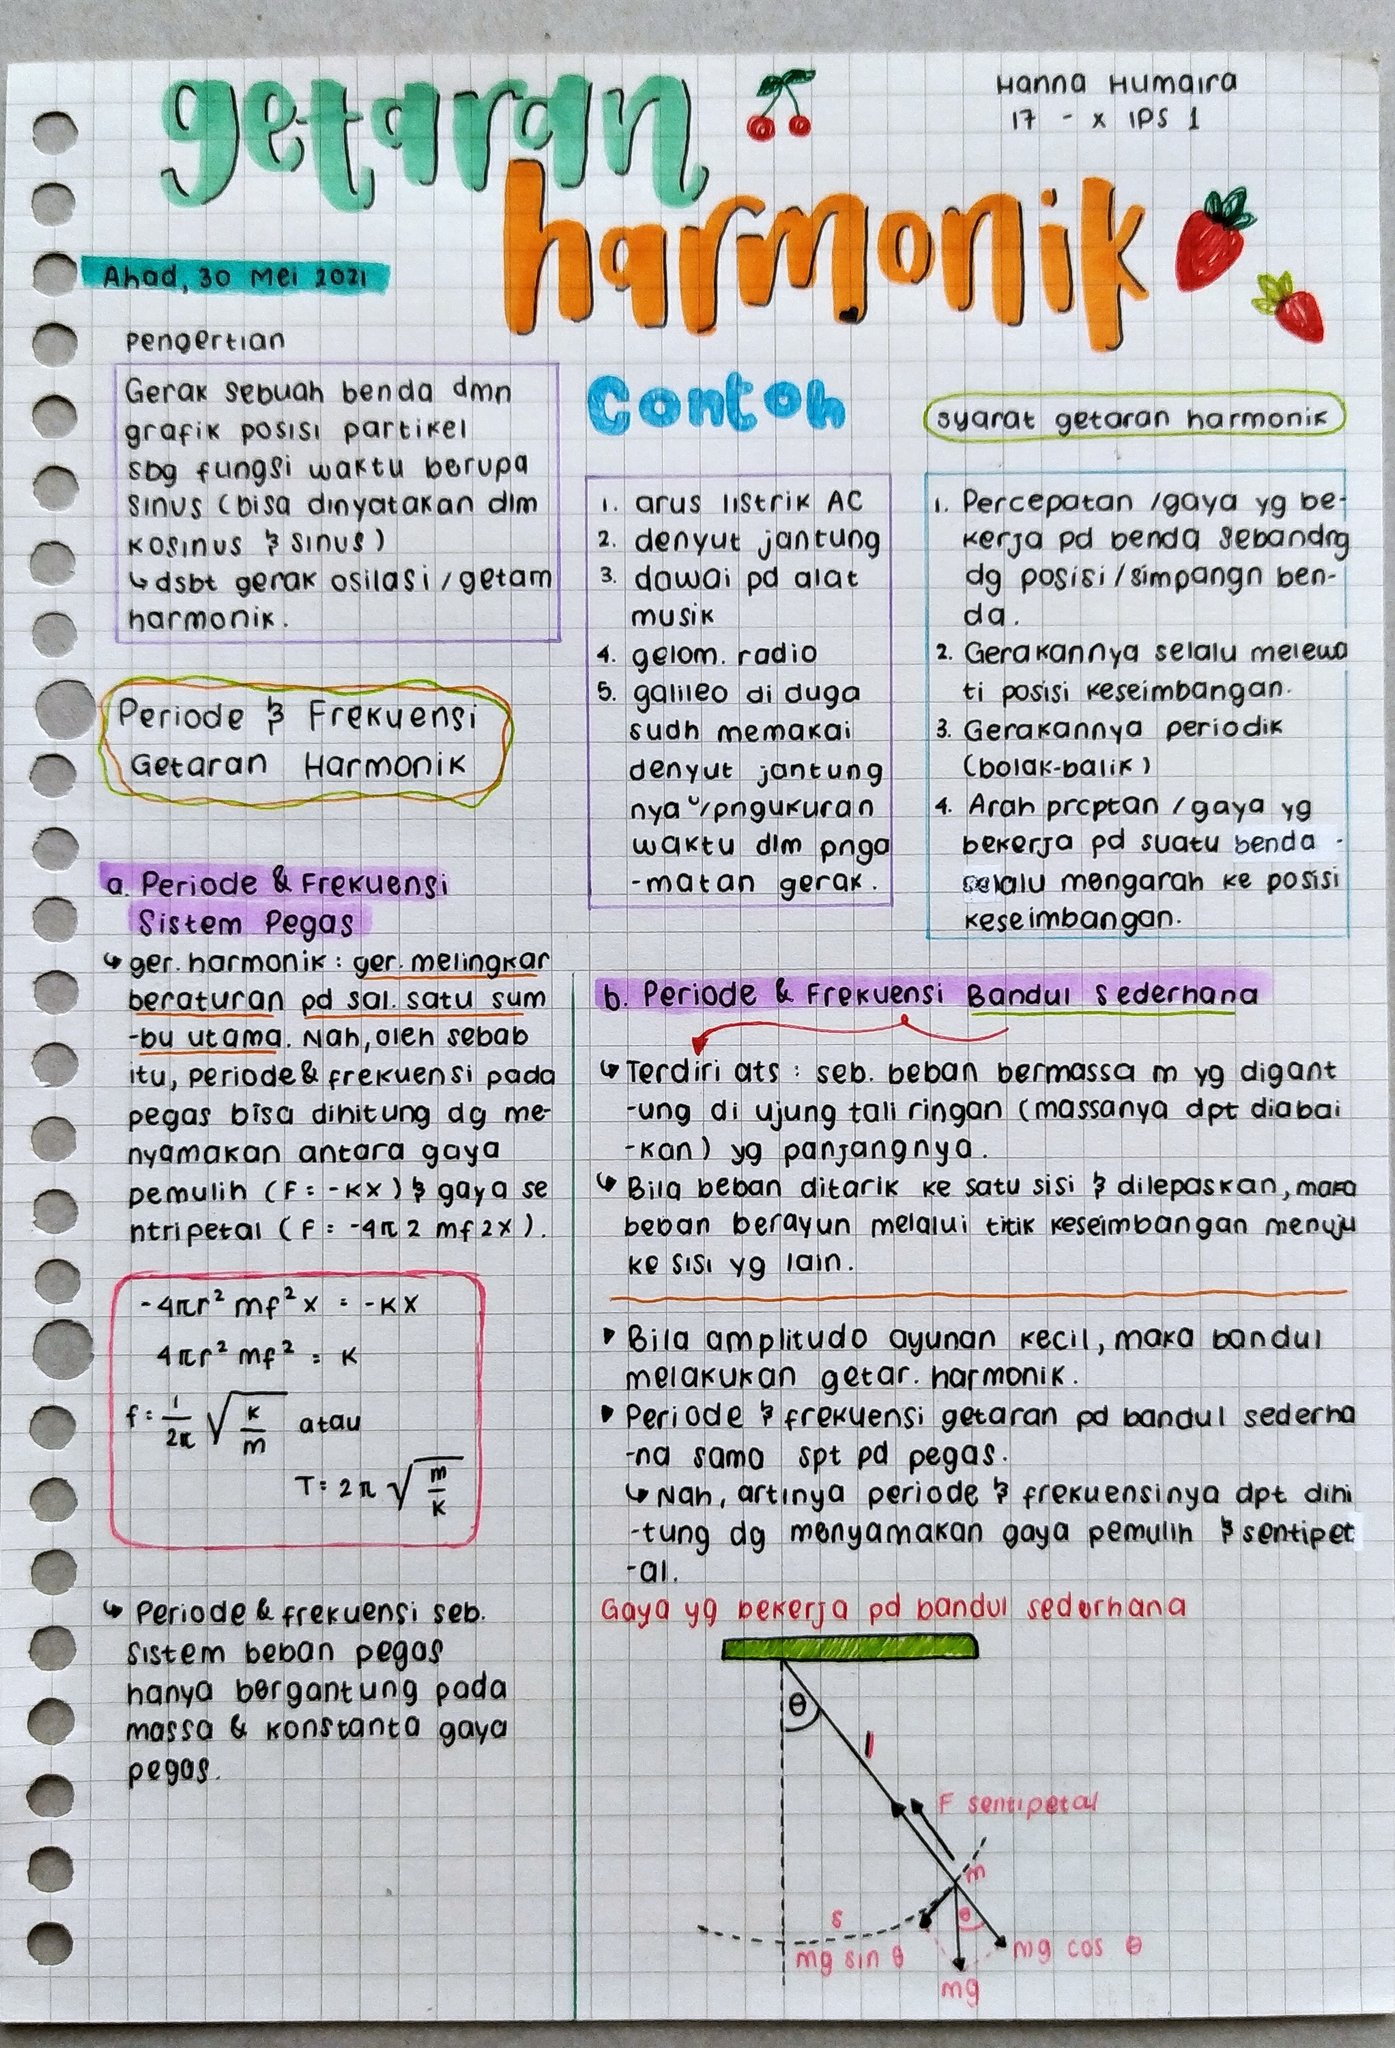 getaran
harmonik
Hanna Humaira
17 - X IPS 1
Ahad, 30 Mei 2021
Pengertian
Gerak sebuah benda dmn
grafik posisi partikel
sbg fungsi waktu berupa
sinus (bisa dinyatakan dlm
kosinus & sinus)
↳ dsbt gerak osilasi/getam
harmonik.
Contoh
1. arus listrik AC
2. denyut jantung
3. dawai pd alat
musik
4. gelom. radio
5. galileo di duga
sudh memakai
denyut jantung
nya u/pngukuran
waktu dlm pnga
-matan gerak.
syarat getaran harmonik
1. Percepatan /gaya yg be-
kerja pd benda sebandng
dg posisi/simpangn ben-
da.
2. Gerakannya selalu melewa
ti posisi keseimbangan.
3. Gerakannya periodik
(bolak-balik)
4. Arah prcptan /gaya yg
bekerja pd suatu benda -
selalu mengarah ke posisi
keseimbangan.
Periode & Frekuensi
Getaran Harmonik
a. Periode & Frekuensi
Sistem Pegas
↳ ger. harmonik : ger. melingkar
beraturan pd sal. satu sum
-bu utama. Nah, oleh sebab
itu, periode & frekuensi pada
pegas bisa dihitung dg me-
nyamakan antara gaya
pemulih (F = -kx) & gaya se
ntripetal (F = -4π2 mf2x).
-4πr² mf² x = -kx
4πr² mf² = k
f = 1/2π √k/m atau
T = 2π √m/k
↳ Periode & frekuensi seb.
sistem beban pegas
hanya bergantung pada
massa & konstanta gaya
pegas.
b. Periode & Frekuensi Bandul Sederhana
↳ Terdiri ats : seb. beban bermassa m yg digant
-ung di ujung tali ringan (massanya dpt diabai
-kan) yg panjangnya.
↳ Bila beban ditarik ke satu sisi & dilepaskan, maka
beban berayun melalui titik keseimbangan menuju
ke sisi yg lain.
▸ Bila amplitudo ayunan kecil, maka bandul
melakukan getar. harmonik.
▸ Periode & frekuensi getaran pd bandul sederha
-na sama spt pd pegas.
↳ Nah, artinya periode & frekuensinya dpt dihi
-tung dg menyamakan gaya pemulih & sentipet
-al.
Gaya yg bekerja pd bandul sederhana
θ
l
F sentipetal
m
s
θ
mg sin θ
mg cos θ
mg